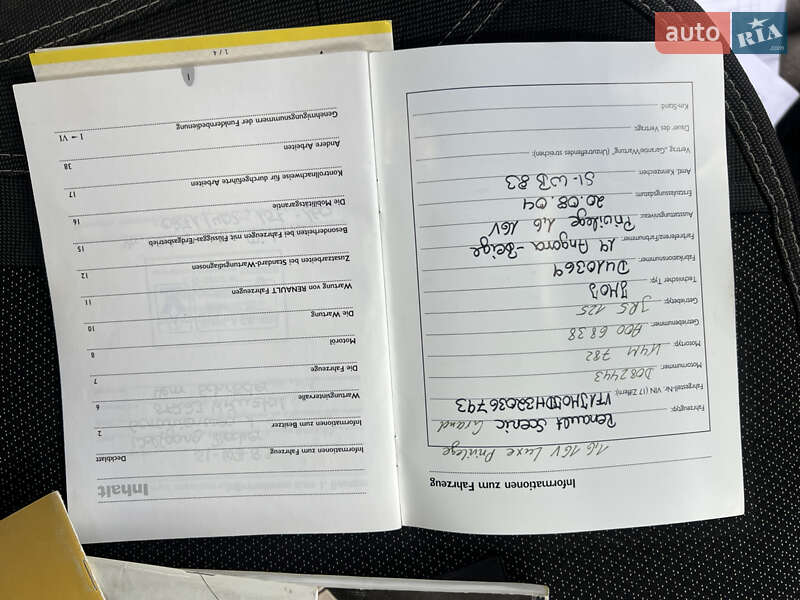 Informationen zum Fahrzeug
1,6 16V Luxe Privilege
Fahrzeugtyp: Renault Scenic Grand
Fahrgestell-Nr. VIN (17 Ziffern):
Motornummer: D082443
Motortyp: K4M 782
Getriebenummer: A00 6838
Getriebetyp: JR5 125
Technischer Typ: JM0J
Fabrikationsnummer: D410369
Farbreferenz/Farbnummer: 14 Angora-Beige
Ausstattungsniveau: Privilege 1,6 16V
Erstzulassungsdatum: 20.08.04
Amtl. Kennzeichen: SI-WB 83
Vertrag „Garantie/Wartung“ (Unzutreffendes streichen):
Dauer des Vertrags:
Km-Stand
Inhalt
Informationen zum Fahrzeug Deckblatt
Informationen zum Besitzer 2
Wartungsintervalle 6
Die Fahrzeuge 7
Motoröl 8
Die Wartung 10
Wartung von RENAULT Fahrzeugen 11
Zusatzarbeiten bei Standard-Wartungsdiagnosen 12
Besonderheiten bei Fahrzeugen mit Flüssiggas-/Erdgasbetrieb 15
Die Mobilitätsgarantie 16
Kontrollnachweise für durchgeführte Arbeiten 17
Andere Arbeiten 38
Genehmigungsnummern der Funkfernbedienung I → VI
1
1 / 4
auto RIA.com